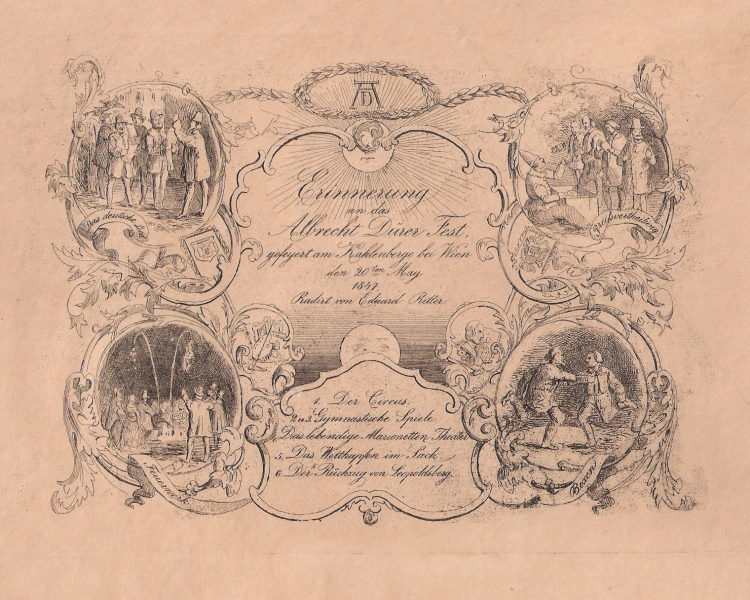 AD
Erinnerung
an das
Albrecht Dürer Fest,
gefeyert am Kahlenberge bei Wien
den 20ten May
1847
Radirt von Eduard Ritter
Das deutsche
Preisvertheilung
1. Der Circus.
2 u 3. Gymnastische Spiele.
4. Das lebendige Marionetten Theater
5. Das Wetthupfen im Sack
6. Der Rückzug von Leopoldsberg.
Feuerwerk